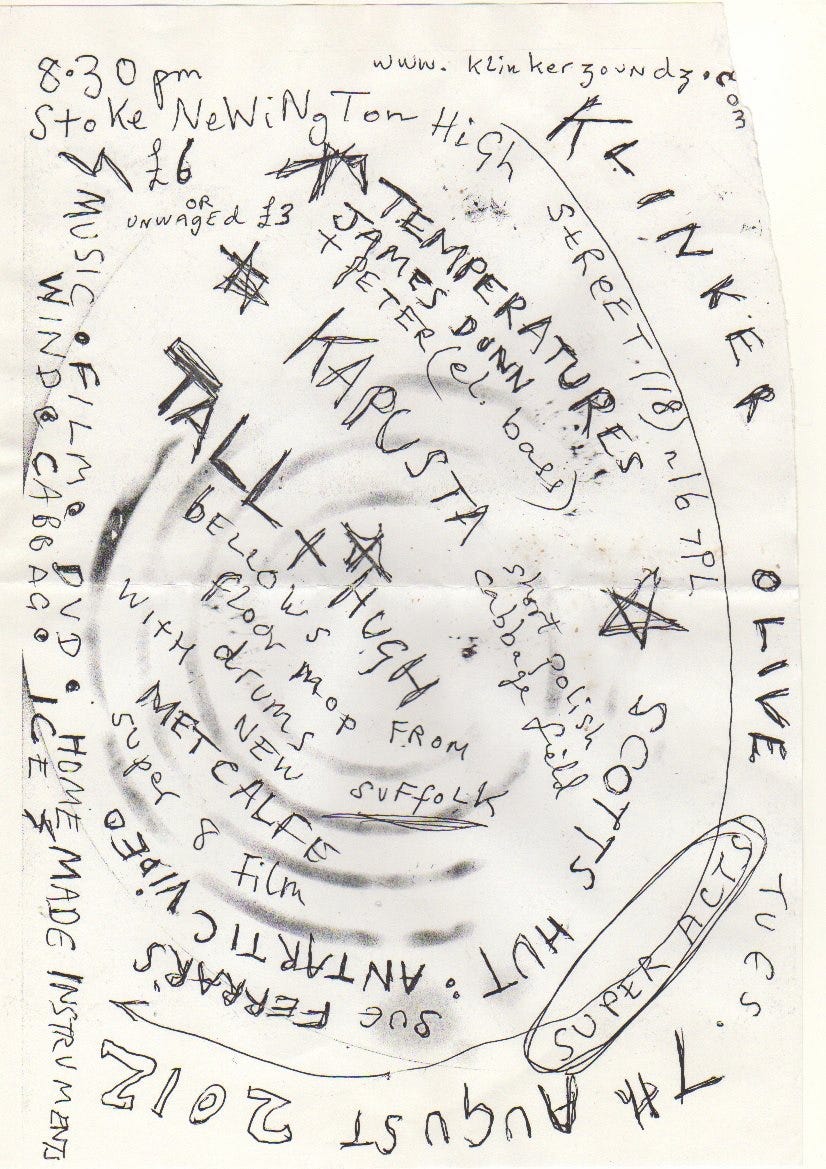 8.30 pm
www. klinkerzoundz.com
Stoke NeWiNgTon HiGh STREET (18) n16 7PL
£6
OR
UNWAgEd £3
KLINKER
OLIVE
TUES.
7th AUGUST 2012
SUPER ACTS
TEMPERATURES
JAMES DUNN
+ PETER (el. bass)
KAPUSTA
short polish
cabbage field
TALL X HUGH
bELLOWS
flOOR MOP FROM
SUFFOLK
WITH drums
NEW
METCALFE
SUPER 8
film
SCOTTS HUT : ANTARTIC VIDEO
SUE FERRAR'S
MUSIC • FILM • DVD • HOMEMADE INSTRUMENTS
WIND • CABBAG • ICE